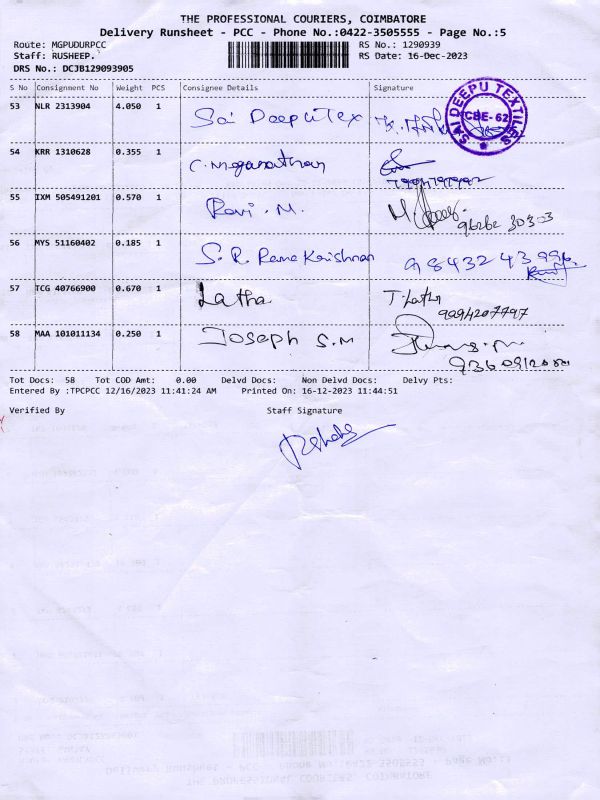 THE PROFESSIONAL COURIERS, COIMBATORE
Delivery Runsheet - PCC - Phone No.:0422-3505555 - Page No.:5
Route: MGPUDURPCC
RS No.: 1290939
Staff: RUSHEEP.
RS Date: 16-Dec-2023
DRS No.: DCJB129093905
S No Consignment No Weight PCS Consignee Details Signature
53 NLR 2313904 4.050 1 Sai Deepu Tex
SAI DEEPU TEXTILES
CBE-62
54 KRR 1310628 0.355 1
55 IXM 505491201 0.570 1 Ravi . M.
96262 30303
56 MYS 51160402 0.185 1 S. R. Rama Krishnan
57 TCG 40766900 0.670 1 Latha T. Latha
9094207797
58 MAA 101011134 0.250 1 Joseph S.M
Tot Docs: 58 Tot COD Amt: 0.00 Delvd Docs: Non Delvd Docs: Delvy Pts:
Entered By :TPCPCC 12/16/2023 11:41:24 AM Printed On: 16-12-2023 11:44:51
Verified By Staff Signature